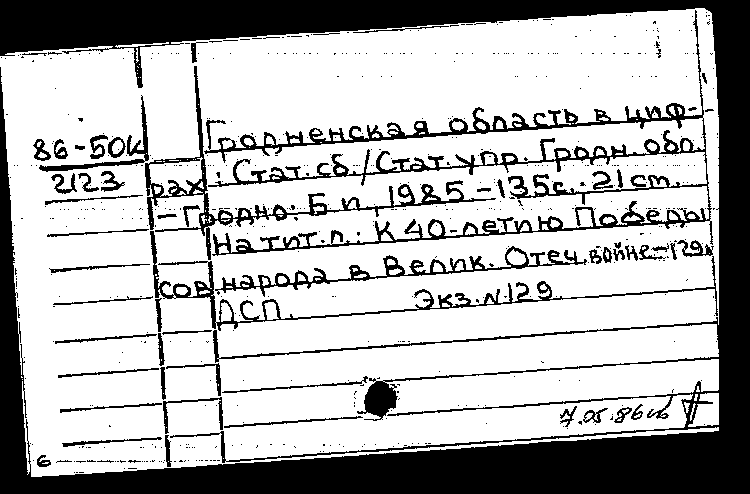 86-50К
2123
Гродненская область в циф-
рах : Стат. сб. / Стат. упр. Гродн. обл.
– Гродно: Б.и., 1985. – 135с.; 21 см.
На тит.л.: К 40-летию Победы
сов. народа в Велик. Отеч. войне – 129
ДСП. Экз. N 129
7.05.86
6